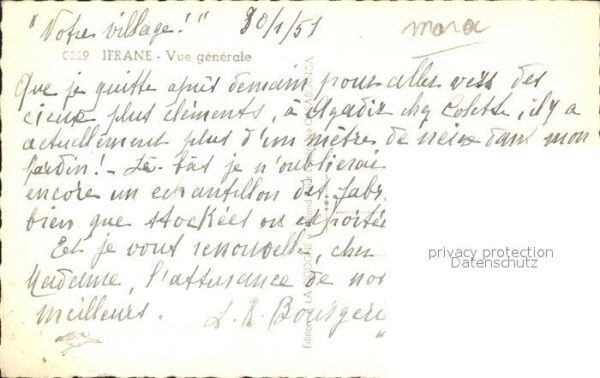 "Notre village!" 30/1/51
Maroc
0329 IFRANE - Vue générale
Que je quitte après demain pour aller vers des
cieux plus cléments, à Agadir chez Colette, il y a
actuellement plus d'un mètre de neige dans mon
jardin! - Là-bas je n'oublierai
encore un echantillon des fabr
bien que stockées ou exportée
Et je vous renouvelle, cher
Madame, l'assurance de nos
meilleurs.
L. R. Bourgeri
Editions LA CIGOGNE
CASABLANCA
privacy protection
Datenschutz